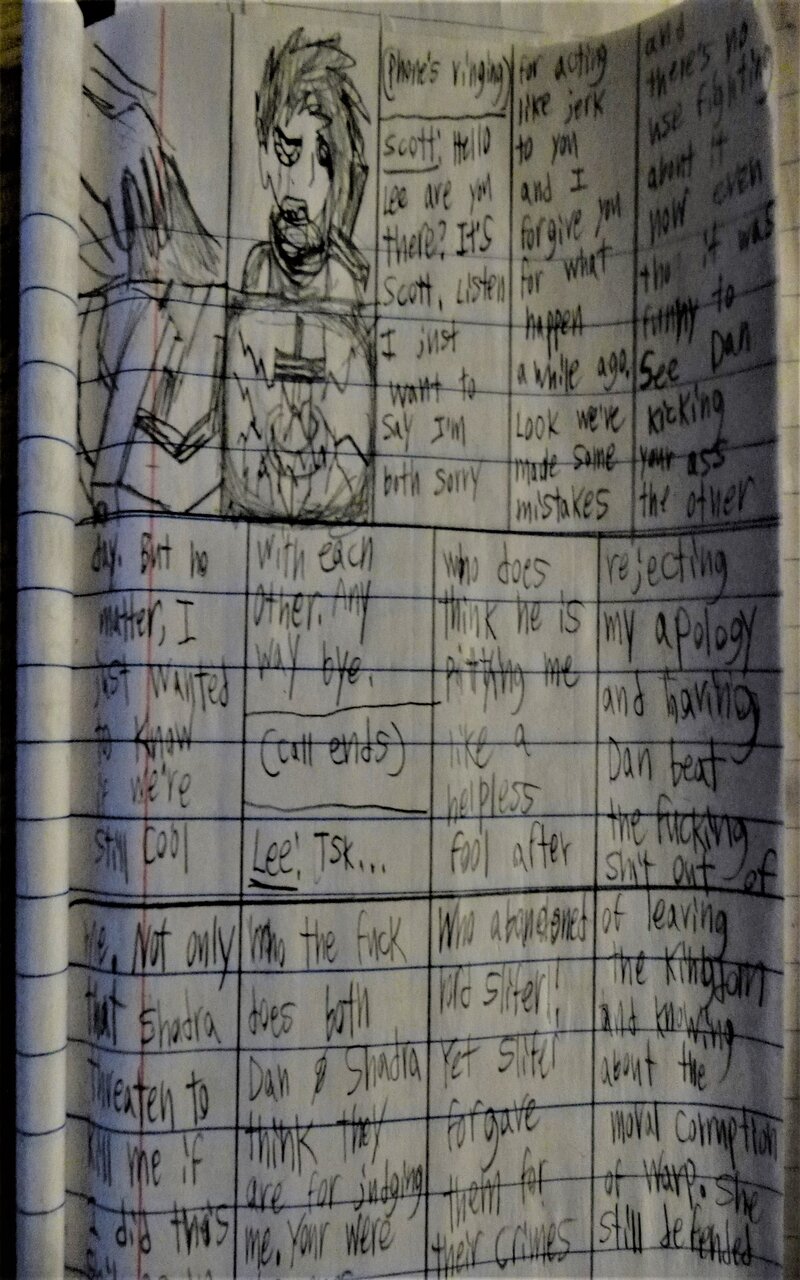 (Phone's ringing)
Scott: Hello
Lee are you
there? It's
Scott, Listen
I just
want to
say I'm
both sorry
for acting
like jerk
to you
and I
forgive you
for what
happen
a while ago.
Look we've
made some
mistakes
and
there's no
use fighting
about it
now even
tho it was
funny to
See Dan
kicking
your ass
the other
day. But no
matter, I
just wanted
to know
if we're
still Cool
with each
other. Any
way bye.
(call ends)
Lee: Tsk...
who does
think he is
pittying me
like a
helpless
fool after
rejecting
my apology
and having
Dan beat
the fucking
shit out of
me. Not only
that Shadra
threaten to
kill me if
I did this
Who the fuck
does both
Dan & Shadra
think they
are for judging
me. Your were
Who abandoned
lord Sliter!!
Yet Sliter
forgave
them for
their crimes
of leaving
the Kingdom
and knowing
about the
moral corruption
of Warp. She
still defended